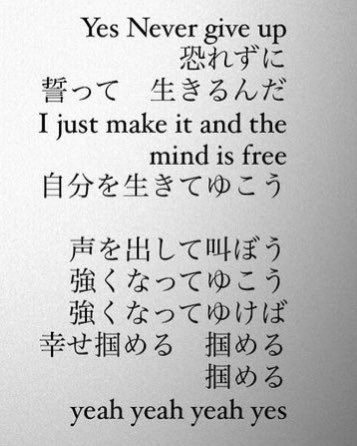 Yes Never give up
恐れずに
誓って　生きるんだ
I just make it and the
mind is free
自分を生きてゆこう
声を出して叫ぼう
強くなってゆこう
強くなってゆけば
幸せ掴める　掴める
掴める
yeah yeah yeah yes